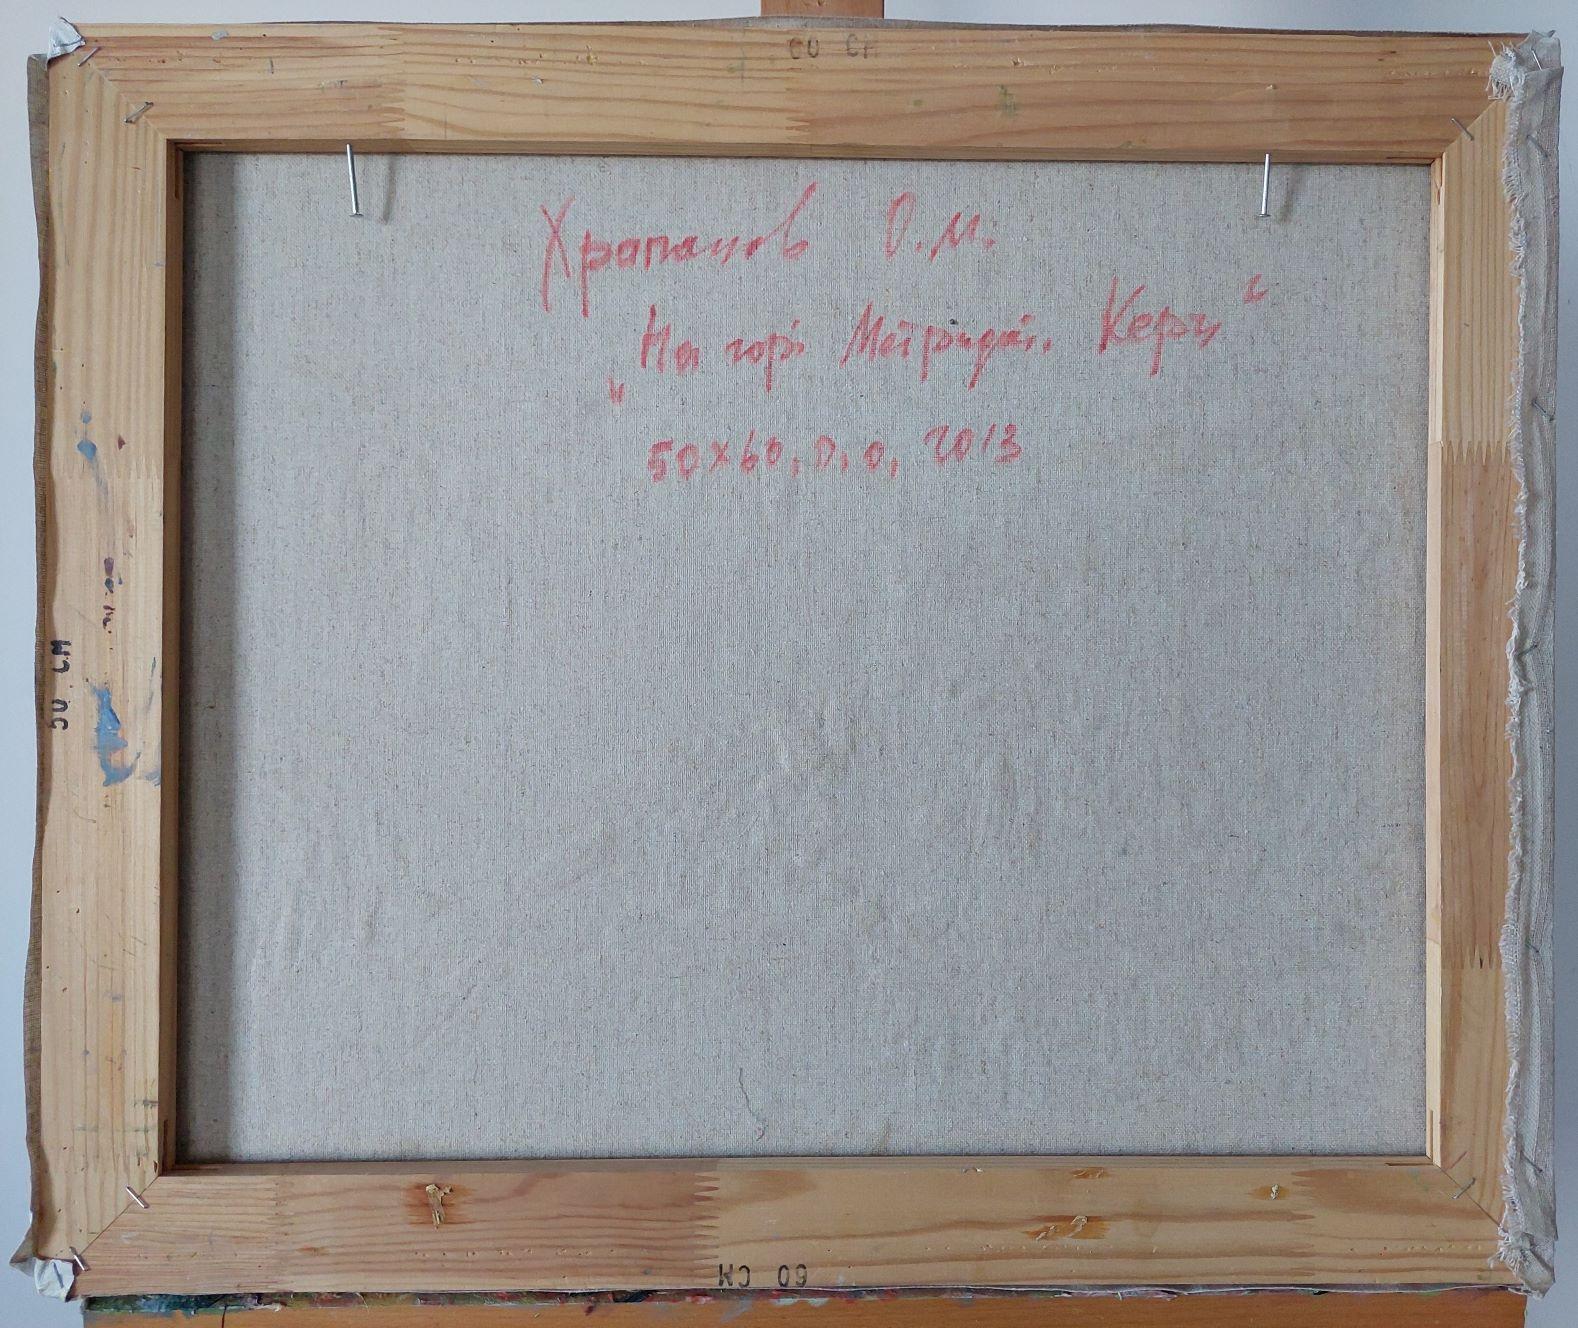 60 СМ
Храпачов О.М.
"На горі Мітрідат. Керч"
50х60, п, о, 2013
50 СМ
60 СМ